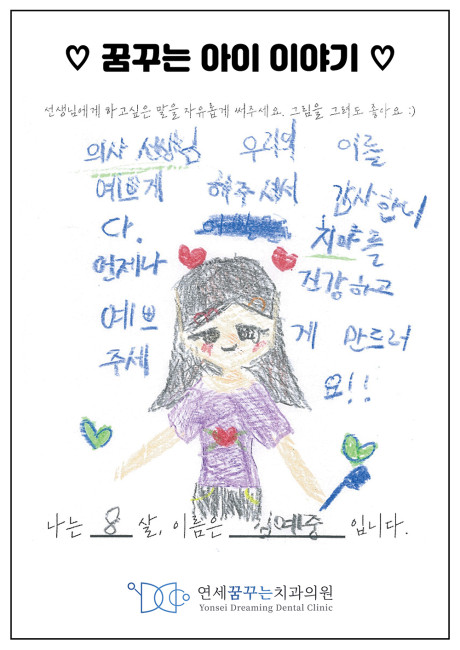 ♡ 꿈꾸는 아이 이야기 ♡
선생님에게 하고싶은 말을 자유롭게 써주세요. 그림을 그려도 좋아요 :)
의사 선생님 우리의 이를
예쁘게 해주셔서 감사합니
다. 치아를
언제나 건강하고
예쁘게 만드러
주세요!!
나는 8 살, 이름은 예중 입니다.
연세꿈꾸는치과의원
Yonsei Dreaming Dental Clinic